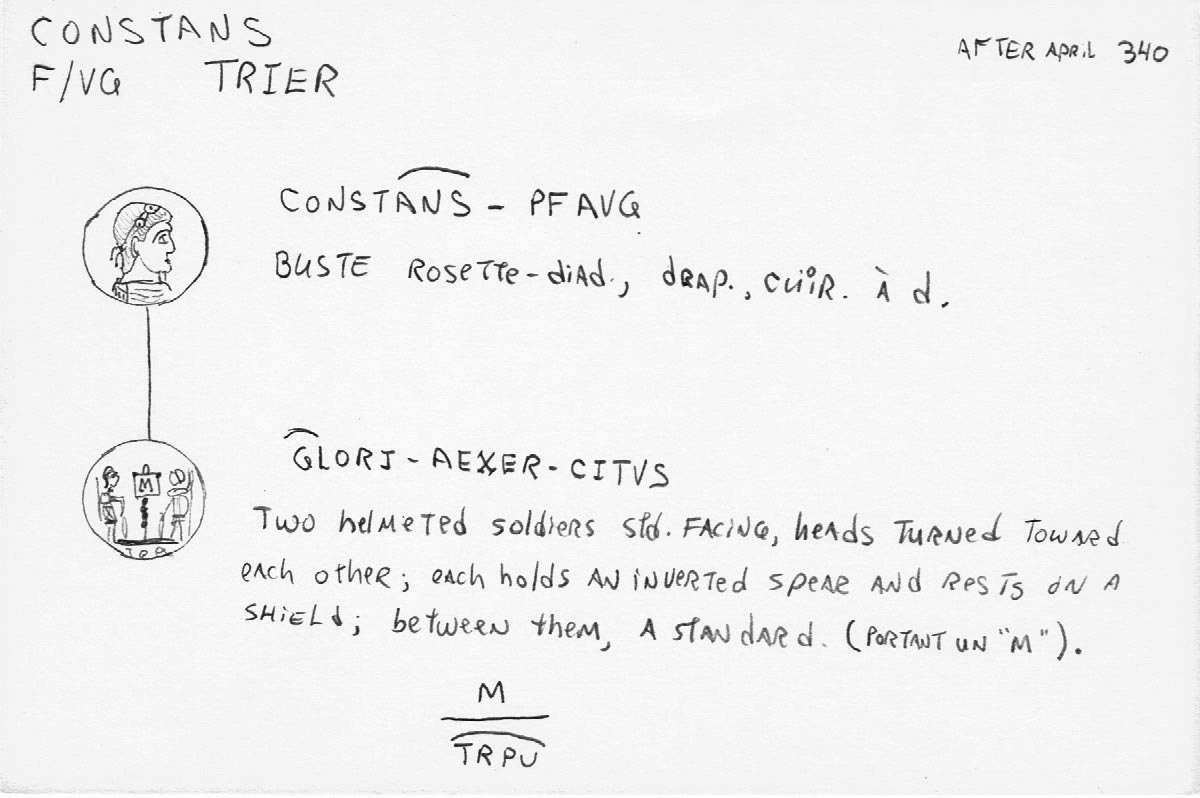 CONSTANS
AFTER APRIL 340
F/VG TRIER
CONSTANS - PF AVG
BUSTE ROSETTE-diAd., dRAP., CUIR. À d.
GLORI-AEXER-CITVS
M
TWO helmeTed soldiers std. FACING, heads TURNed TOWARd
each other; each holds AN iNVERTed speAR ANd RESTS ON A
SHiELd; between them, A STANdARd. (PORTANT UN "M").
M
TRPU